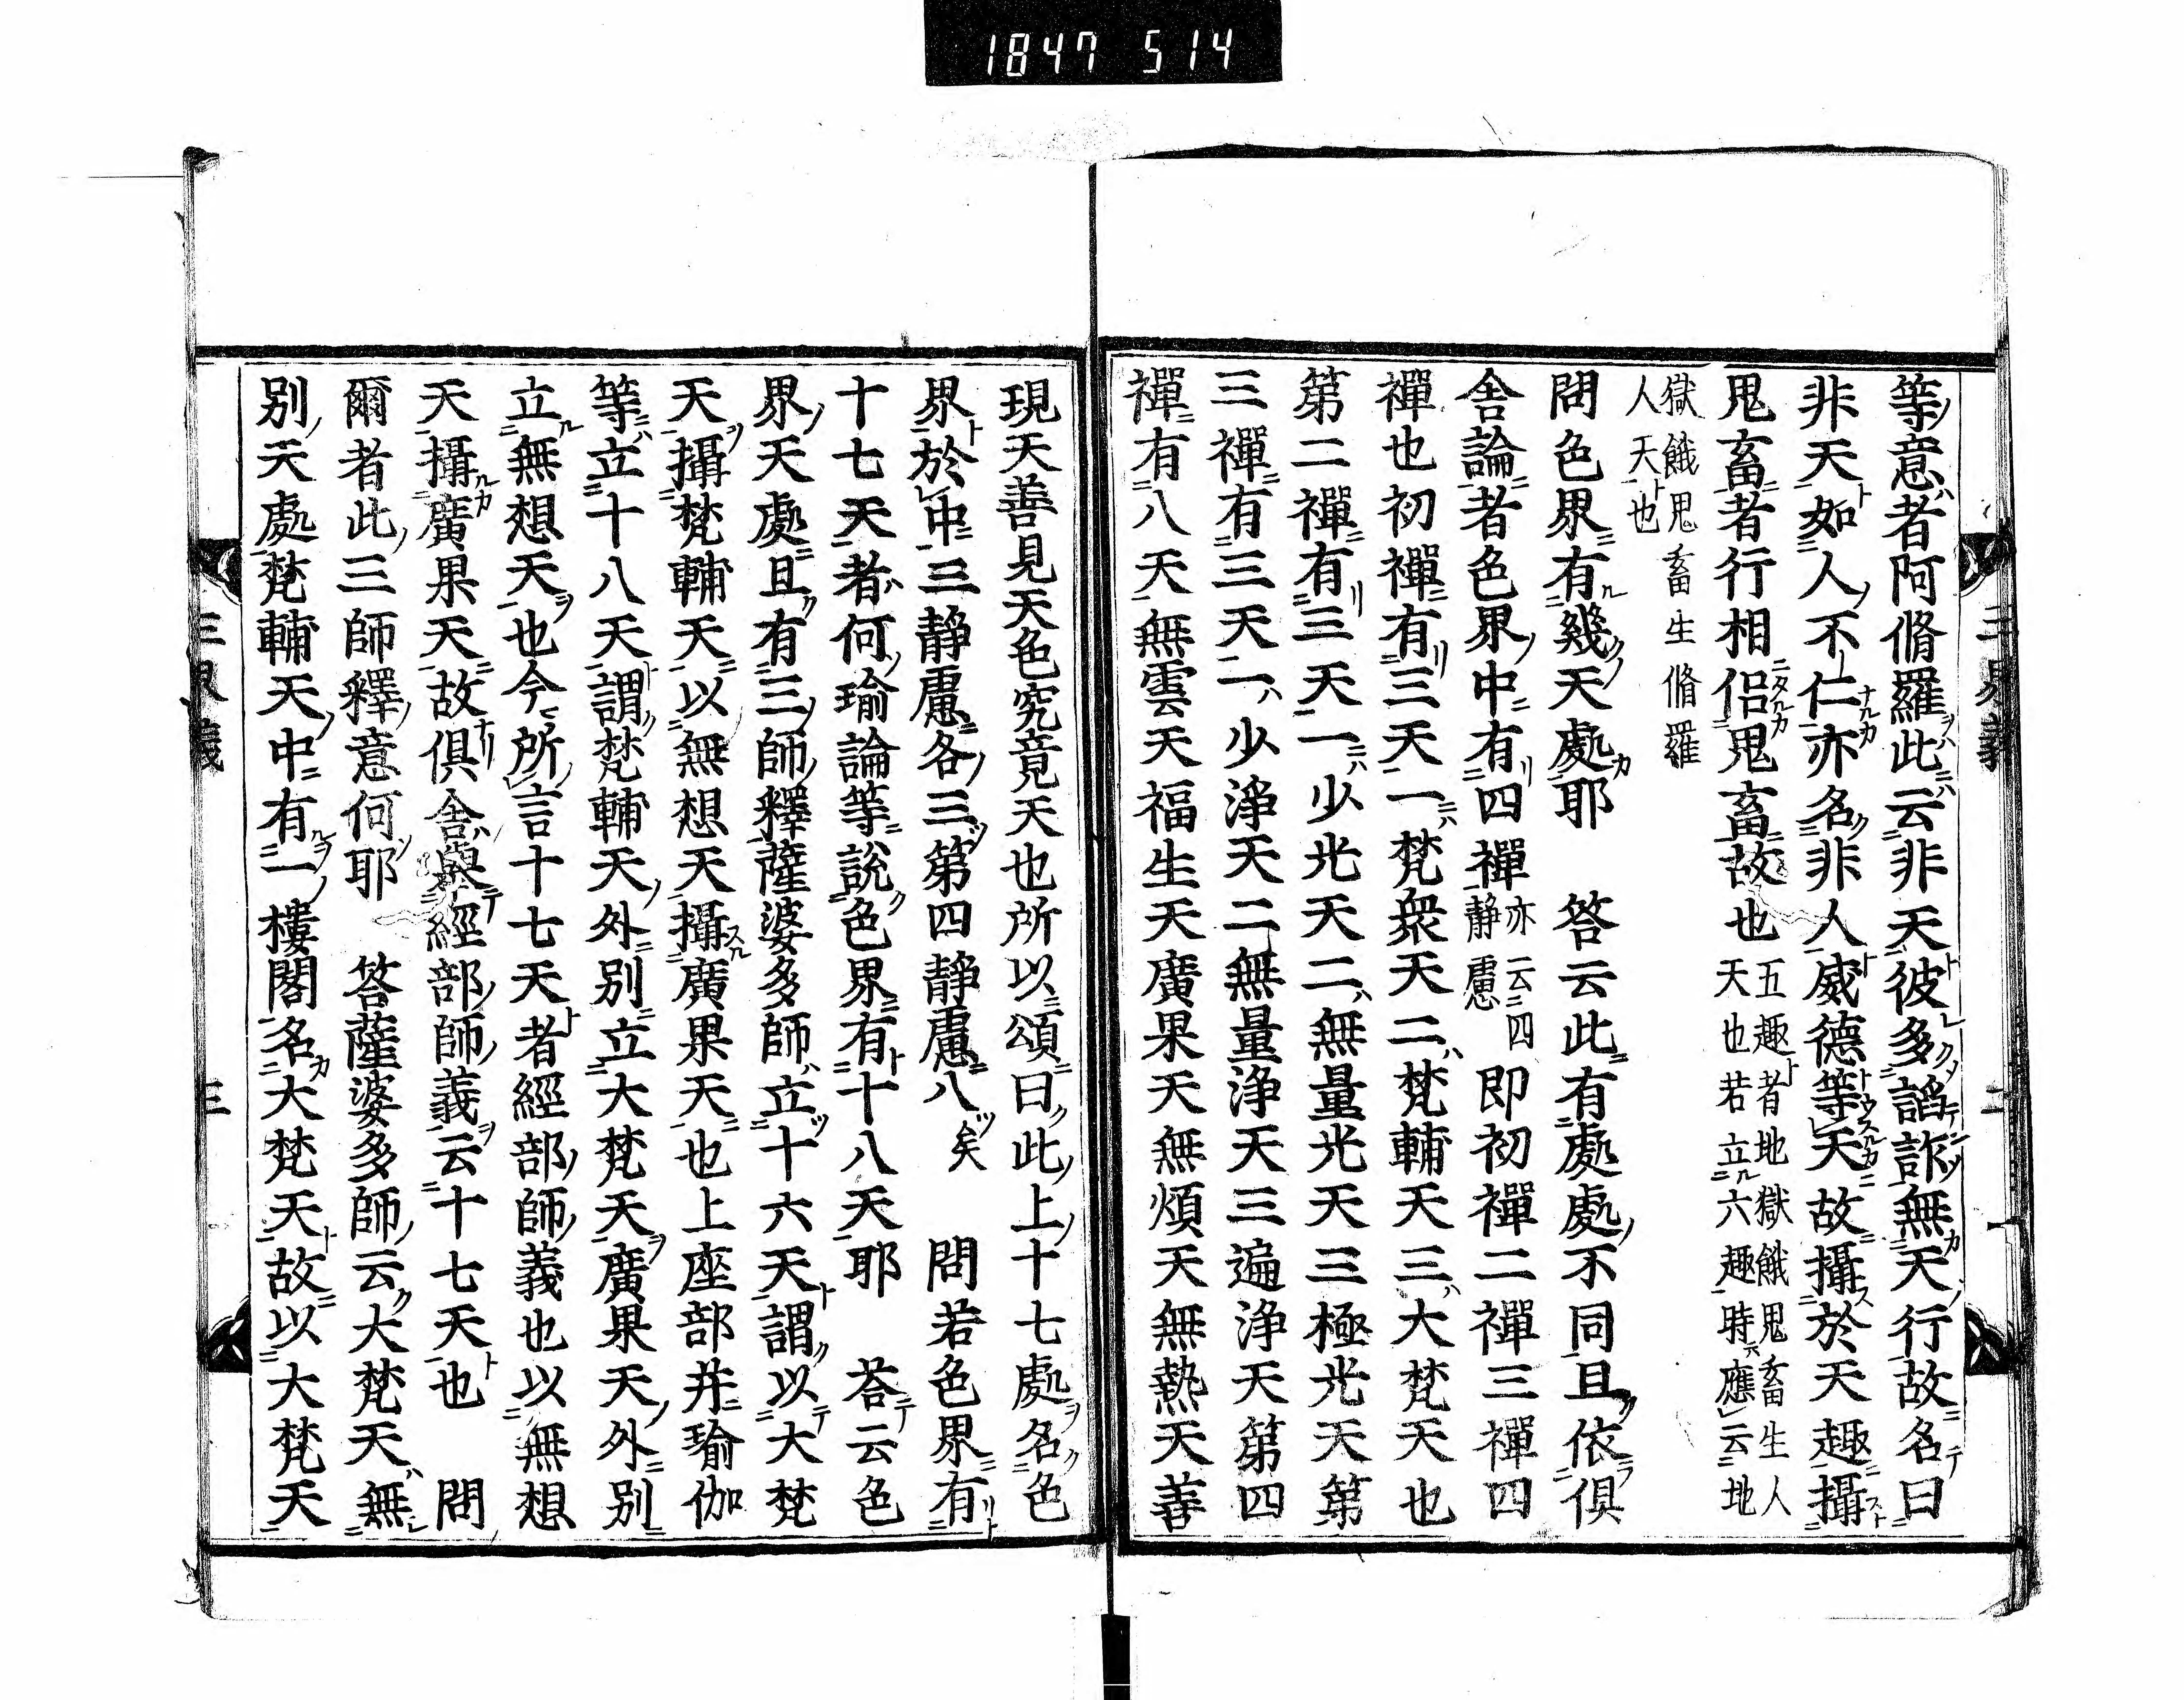 1847 514
等意者阿脩羅此云非天彼多諂詐無天行故名曰
非天如人不仁亦名非人威德等天故攝於天趣攝
鬼畜者行相侣鬼畜故也五趣者地獄餓鬼畜生人
天也若立六趣時應云地
獄餓鬼畜生脩羅
人天也
問色界有幾天處耶　答云此有處處不同且依俱
舍論者色界中有四禪亦云四靜慮即初禪二禪三禪四
禪也初禪有三天一梵衆天二梵輔天三大梵天也
第二禪有三天一少光天二無量光天三極光天第
三禪有三天一少淨天二無量淨天三遍淨天第四
禪有八天無雲天福生天廣果天無煩天無熱天善
現天善見天色究竟天也所以頌曰此上十七處名色
界於中三靜慮各三第四靜慮八矣　問若色界有
十七天者何瑜論等說色界有十八天耶　荅云色
界天處且有三師釋薩婆多師立十六天謂以大梵
天攝梵輔天以無想天攝廣果天也上座部并瑜伽
等立十八天謂梵輔天外別立大梵天廣果天外別
立無想天也今所言十七天者經部師義也以無想
天攝廣果天故俱舍與經部師義云十七天也　問
爾者此三師釋意何耶　答薩婆多師云大梵天無
別天處梵輔天中有一樓閣名大梵天故以大梵天
三界義
三